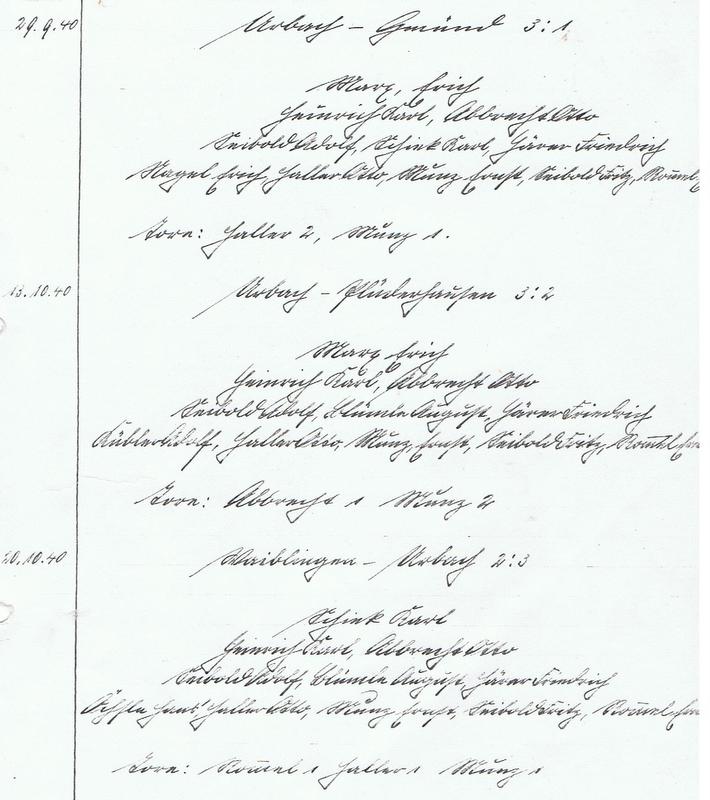 29.9.40 Urbach – Gmünd 3:1
Marx, Erich
Heinrich Karl, Abbrecht Otto
Seibold Adolf, Schiek Karl, Härer Friedrich
Nagel Erich, Haller Otto, Munz Ernst, Seibold Fritz, Rom̅el,
Tore: Haller 2, Munz 1.
13.10.40 Urbach – Plüderhausen 3:2
Marx Erich
Heinrich Karl, Abbrecht Otto
Seibold Adolf, Blümle August, Härer Friedrich
Kübler Adolf, Haller Otto, Munz, Ernst, Seibold Fritz, Rom̅el,
Tore: Abbrecht 1 Munz 2
20.10.40 Waiblingen – Urbach 2:3
Schiek Karl
Heinrich Karl, Abbrecht Otto
Seibold Adolf, Blümle August, Härer Friedrich
Öchsle Hans, Haller Otto, Munz Ernst, Seibold Fritz, Rom̅el,
Tore: Rom̅el 1 Haller 1 Munz 1